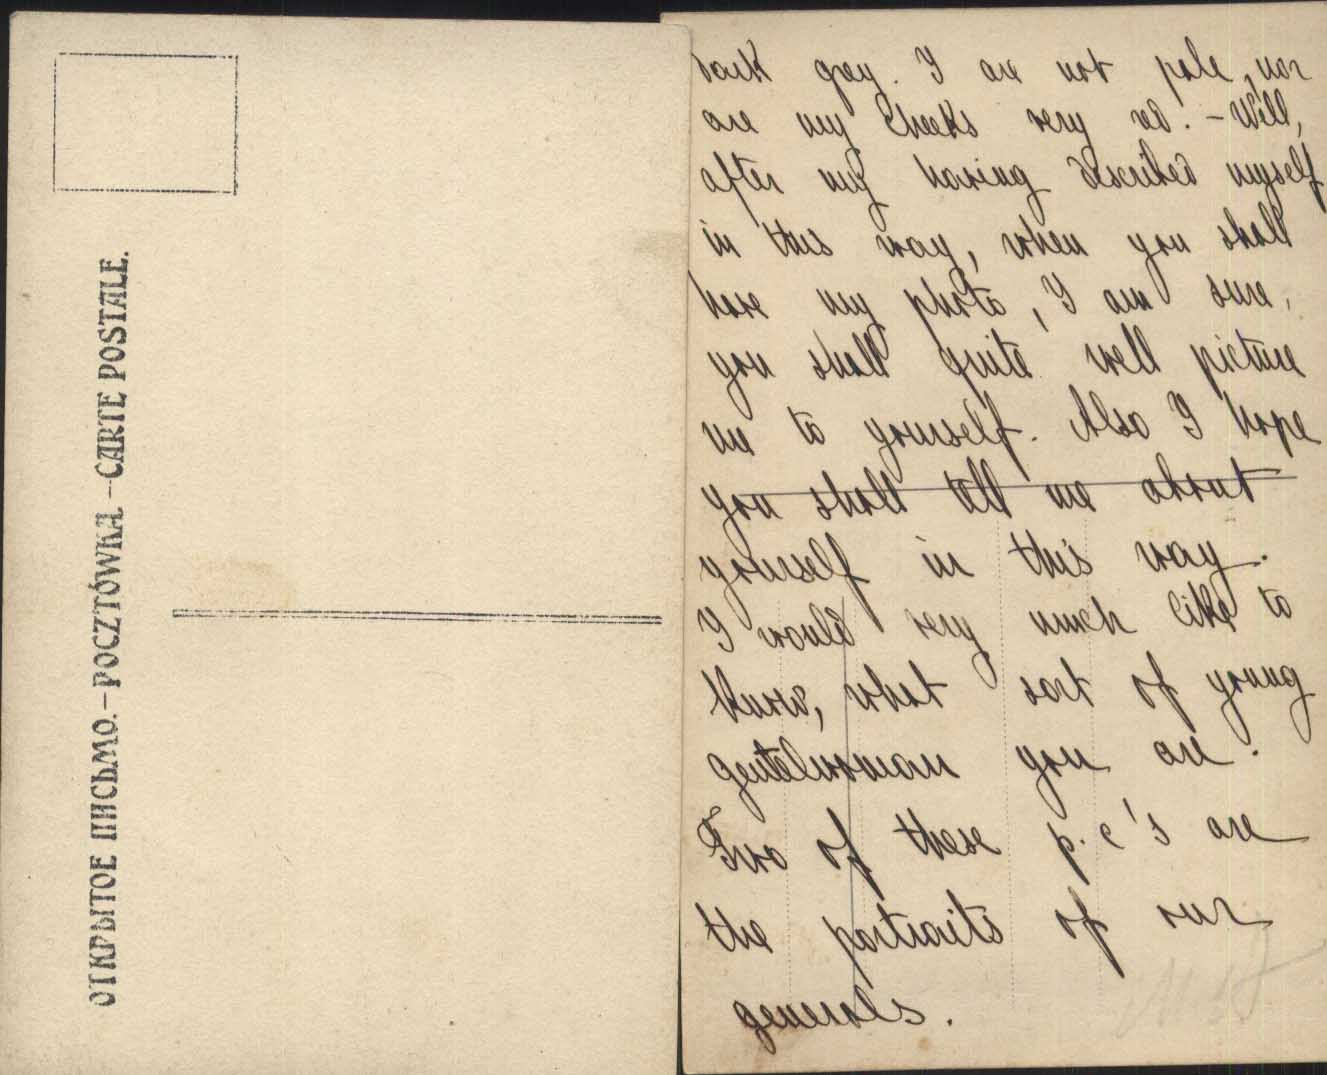 ОТКРЫТОЕ ПИСЬМО.—POCZTÓWKA—CARTE POSTALE.
dark grey. I am not pale, nor
are my cheeks very red. – Well,
after my having described myself
in this way, when you shall
have my photo, I am sure,
you shall quite well picture
me to yourself. Also I hope
you shall tell me about
yourself in this way.
I would very much like to
know, what sort of young
gentelwoman you are.
Two of these p.c's are
the portraits of our
generals.